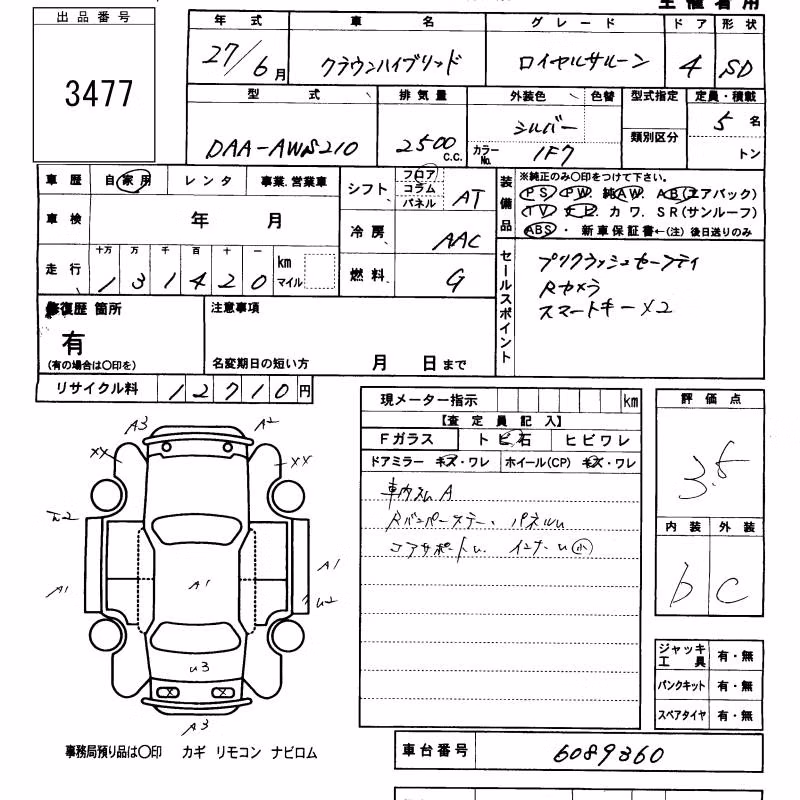 主催者用
出品番号 年式 車名 グレード ドア 形状
3477 27/6月 クラウンハイブリッド ロイヤルサルーン 4 SD
型式 排気量 外装色 色替 型式指定 定員・積載
DAA-AWS210 2500 C.C. シルバー 類別区分 5名
カラーNo. 1F7 トン
車歴 自家用 レンタ 事業.営業車 シフト フロア コラム パネル AT
装備品 ※純正のみ○印をつけて下さい。
PS PW. 純AW. AB(エアバック)
TV ナビ. カワ. SR(サンルーフ)
ABS・ 新車保証書←(注) 後日送りのみ
車検 年 月 冷房 AAC
走行 十万 万 千 百 十 一
1 3 1 4 2 0 km マイル 燃料 G
セールスポイント プリクラッシュセーフティ
Rカメラ
スマートキー×2
修復歴 箇所 注意事項
有
(有の場合は○印を) 名変期日の短い方 月 日まで
リサイクル料 12710円
現メーター指示 km 評価点
【査定員記入】
Fガラス トビ石 ヒビワレ
ドアミラー キズ・ワレ ホイール(CP) キズ・ワレ
3.5
車内スムA
Rバンパーステー、パネルu
コアサポートu. インナーu 小
内装 外装
b C
A3 A2
XX XX
A1 A1 A1
u2
u3
X X
A3
ジャッキ工具 有・無
パンクキット 有・無
スペアタイヤ 有・無
事務局預り品は○印 カギ リモコン ナビロム
車台番号 6089360